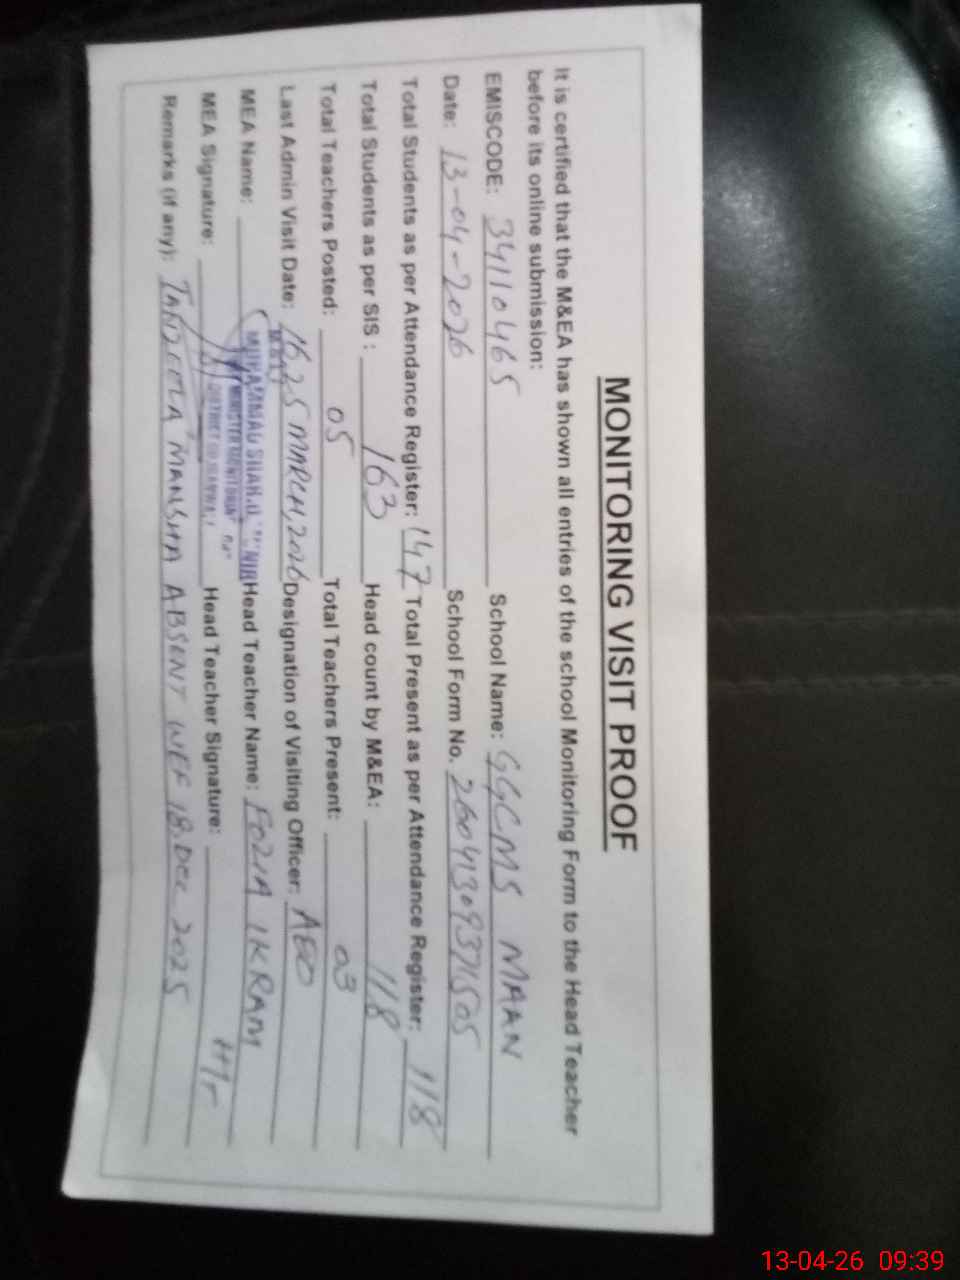 MONITORING VISIT PROOF
It is certified that the M&EA has shown all entries of the school Monitoring Form to the Head Teacher
before its online submission:
EMISCODE: 34110465 School Name: GGCMS MAAN
Date: 13-04-2026 School Form No.
Total Students as per Attendance Register: 147 Total Present as per Attendance Register: 118
Total Students as per SIS : 163 Head count by M&EA: 118
Total Teachers Posted: 05 Total Teachers Present: 03
Last Admin Visit Date: MARCH, 2026 Designation of Visiting Officer: AEO
MEA Name: Head Teacher Name: FOZIA IKRAM
MEA Signature: Head Teacher Signature:
Remarks (if any): MANSHA ABSENT WEF 18. DEC 2025
13-04-26 09:39